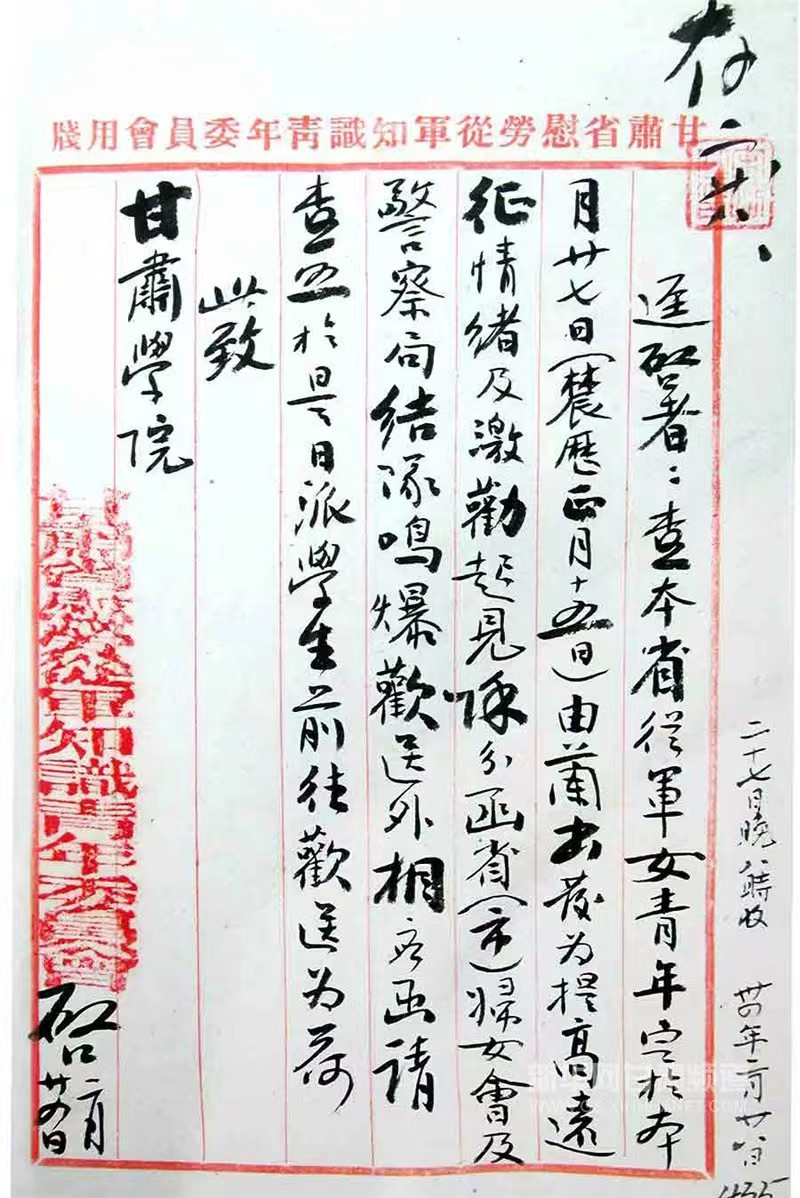 存
甘肅省慰勞從軍知識青年委員會用牋
逕啓者：查本省從軍女青年定於本
月廿七日（農歷正月十五日）由蘭出發为提高遠
征情緒及激勸起見除分函省（市）婦女會及
警察局結隊鳴爆歡送外相應函請
查照於是日派學生前往歡送为荷
此致
甘肅學院
甘肅省慰勞從軍知識青年委員會
啓 二月
二十七日晚八時收
卅四年二月廿八日